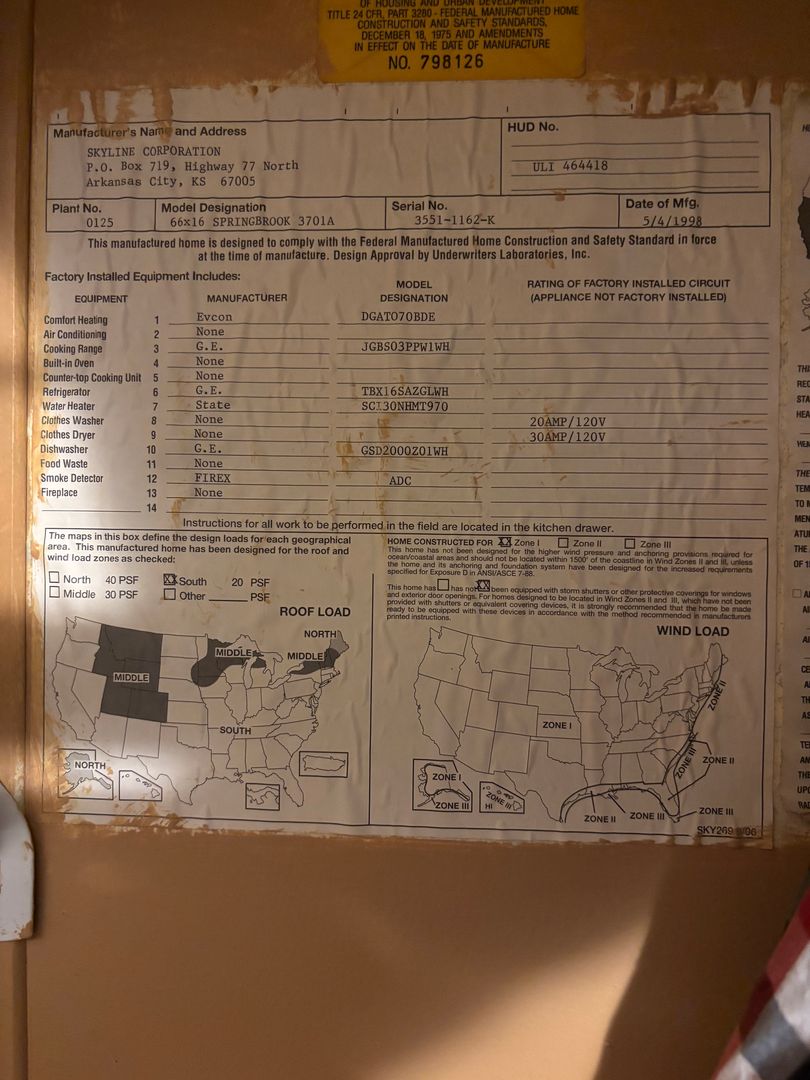 OF HOUSING AND URBAN DEVELOPMENT
TITLE 24 CFR, PART 3280 - FEDERAL MANUFACTURED HOME
CONSTRUCTION AND SAFETY STANDARDS,
DECEMBER 18, 1975 AND AMENDMENTS
IN EFFECT ON THE DATE OF MANUFACTURE
NO. 798126
Manufacturer's Name and Address
SKYLINE CORPORATION
P.O. Box 719, Highway 77 North
Arkansas City, KS 67005
HUD No.
ULI 464418
Plant No.
0125
Model Designation
66x16 SPRINGBROOK 3701A
Serial No.
3551-1162-K
Date of Mfg.
5/4/1998
This manufactured home is designed to comply with the Federal Manufactured Home Construction and Safety Standard in force
at the time of manufacture. Design Approval by Underwriters Laboratories, Inc.
Factory Installed Equipment Includes:
EQUIPMENT MANUFACTURER MODEL DESIGNATION RATING OF FACTORY INSTALLED CIRCUIT (APPLIANCE NOT FACTORY INSTALLED)
Comfort Heating 1 Evcon DGAT070BDE
Air Conditioning 2 None
Cooking Range 3 G.E. JGBS03PPW1WH
Built-in Oven 4 None
Counter-top Cooking Unit 5 None
Refrigerator 6 G.E. TBX16SAZGLWH
Water Heater 7 State SCI30NHMT970
Clothes Washer 8 None 20AMP/120V
Clothes Dryer 9 None 30AMP/120V
Dishwasher 10 G.E. GSD2000Z01WH
Food Waste 11 None
Smoke Detector 12 FIREX ADC
Fireplace 13 None
14
Instructions for all work to be performed in the field are located in the kitchen drawer.
The maps in this box define the design loads for each geographical
area. This manufactured home has been designed for the roof and
wind load zones as checked:
North 40 PSF South 20 PSF
Middle 30 PSF Other PSF
ROOF LOAD
NORTH
MIDDLE
MIDDLE
MIDDLE
SOUTH
NORTH
HOME CONSTRUCTED FOR Zone I Zone II Zone III
This home has not been designed for the higher wind pressure and anchoring provisions required for
ocean/coastal areas and should not be located within 1500' of the coastline in Wind Zones II and III, unless
the home and its anchoring and foundation system have been designed for the increased requirements
specified for Exposure D in ANSI/ASCE 7-88.
This home has has not been equipped with storm shutters or other protective coverings for windows
and exterior door openings. For homes designed to be located in Wind Zones II and III, which have not been
provided with shutters or equivalent covering devices, it is strongly recommended that the home be made
ready to be equipped with these devices in accordance with the method recommended in manufacturers
printed instructions.
WIND LOAD
ZONE II
ZONE I
ZONE III
ZONE II
ZONE I
ZONE III
ZONE III
HI
ZONE II
ZONE III
ZONE III
SKY269